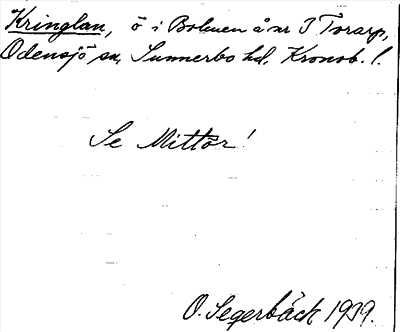 Kringlan, ö i Bolmen å nr 3 Torarp,
Odensjö sn, Sunnerbo hd, Kronob. l.
Se Mittör!
O. Segerbäck 1919.